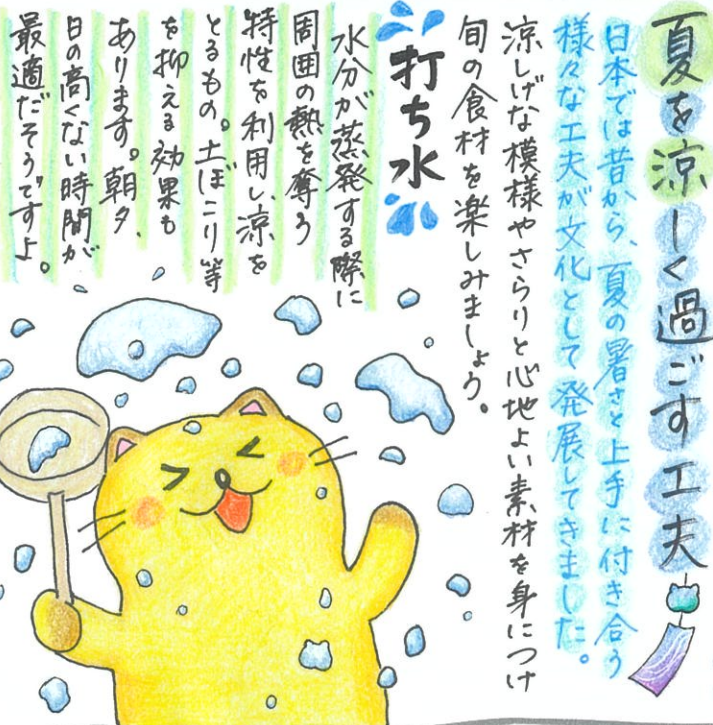 夏を涼しく過ごす工夫
日本では昔から、夏の暑さと上手に付き合う
様々な工夫が文化として発展してきました。
涼しげな模様やさらりと心地よい素材を身につけ
旬の食材を楽しみましょう。
打ち水
水分が蒸発する際に
周囲の熱を奪う
特性を利用し、涼を
とるもの。土ぼこり等
を抑える効果も
あります。朝夕、
日の高くない時間が
最適だそうですよ。